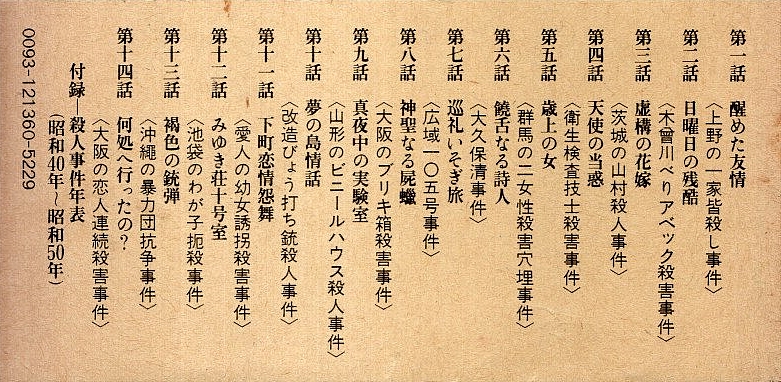 第一話 醒めた友情
〈上野の一家皆殺し事件〉
第二話 日曜日の残酷
〈木曾川べりアベック殺害事件〉
第三話 虚構の花嫁
〈茨城の山村殺人事件〉
第四話 天使の当惑
〈衛生検査技士殺害事件〉
第五話 歳上の女
〈群馬の二女性殺害穴埋事件〉
第六話 饒舌なる詩人
〈大久保清事件〉
第七話 巡礼いそぎ旅
〈広域一〇五号事件〉
第八話 神聖なる屍蠟
〈大阪のブリキ箱殺害事件〉
第九話 真夜中の実験室
〈山形のビニールハウス殺人事件〉
第十話 夢の島情話
〈改造びょう打ち銃殺人事件〉
第十一話 下町恋情怨舞
〈愛人の幼女誘拐殺害事件〉
第十二話 みゆき荘十号室
〈池袋のわが子扼殺事件〉
第十三話 褐色の銃弾
〈沖縄の暴力団抗争事件〉
第十四話 何処へ行ったの？
〈大阪の恋人連続殺害事件〉
付録―殺人事件年表
（昭和40年～昭和50年）
0093-121360-5229